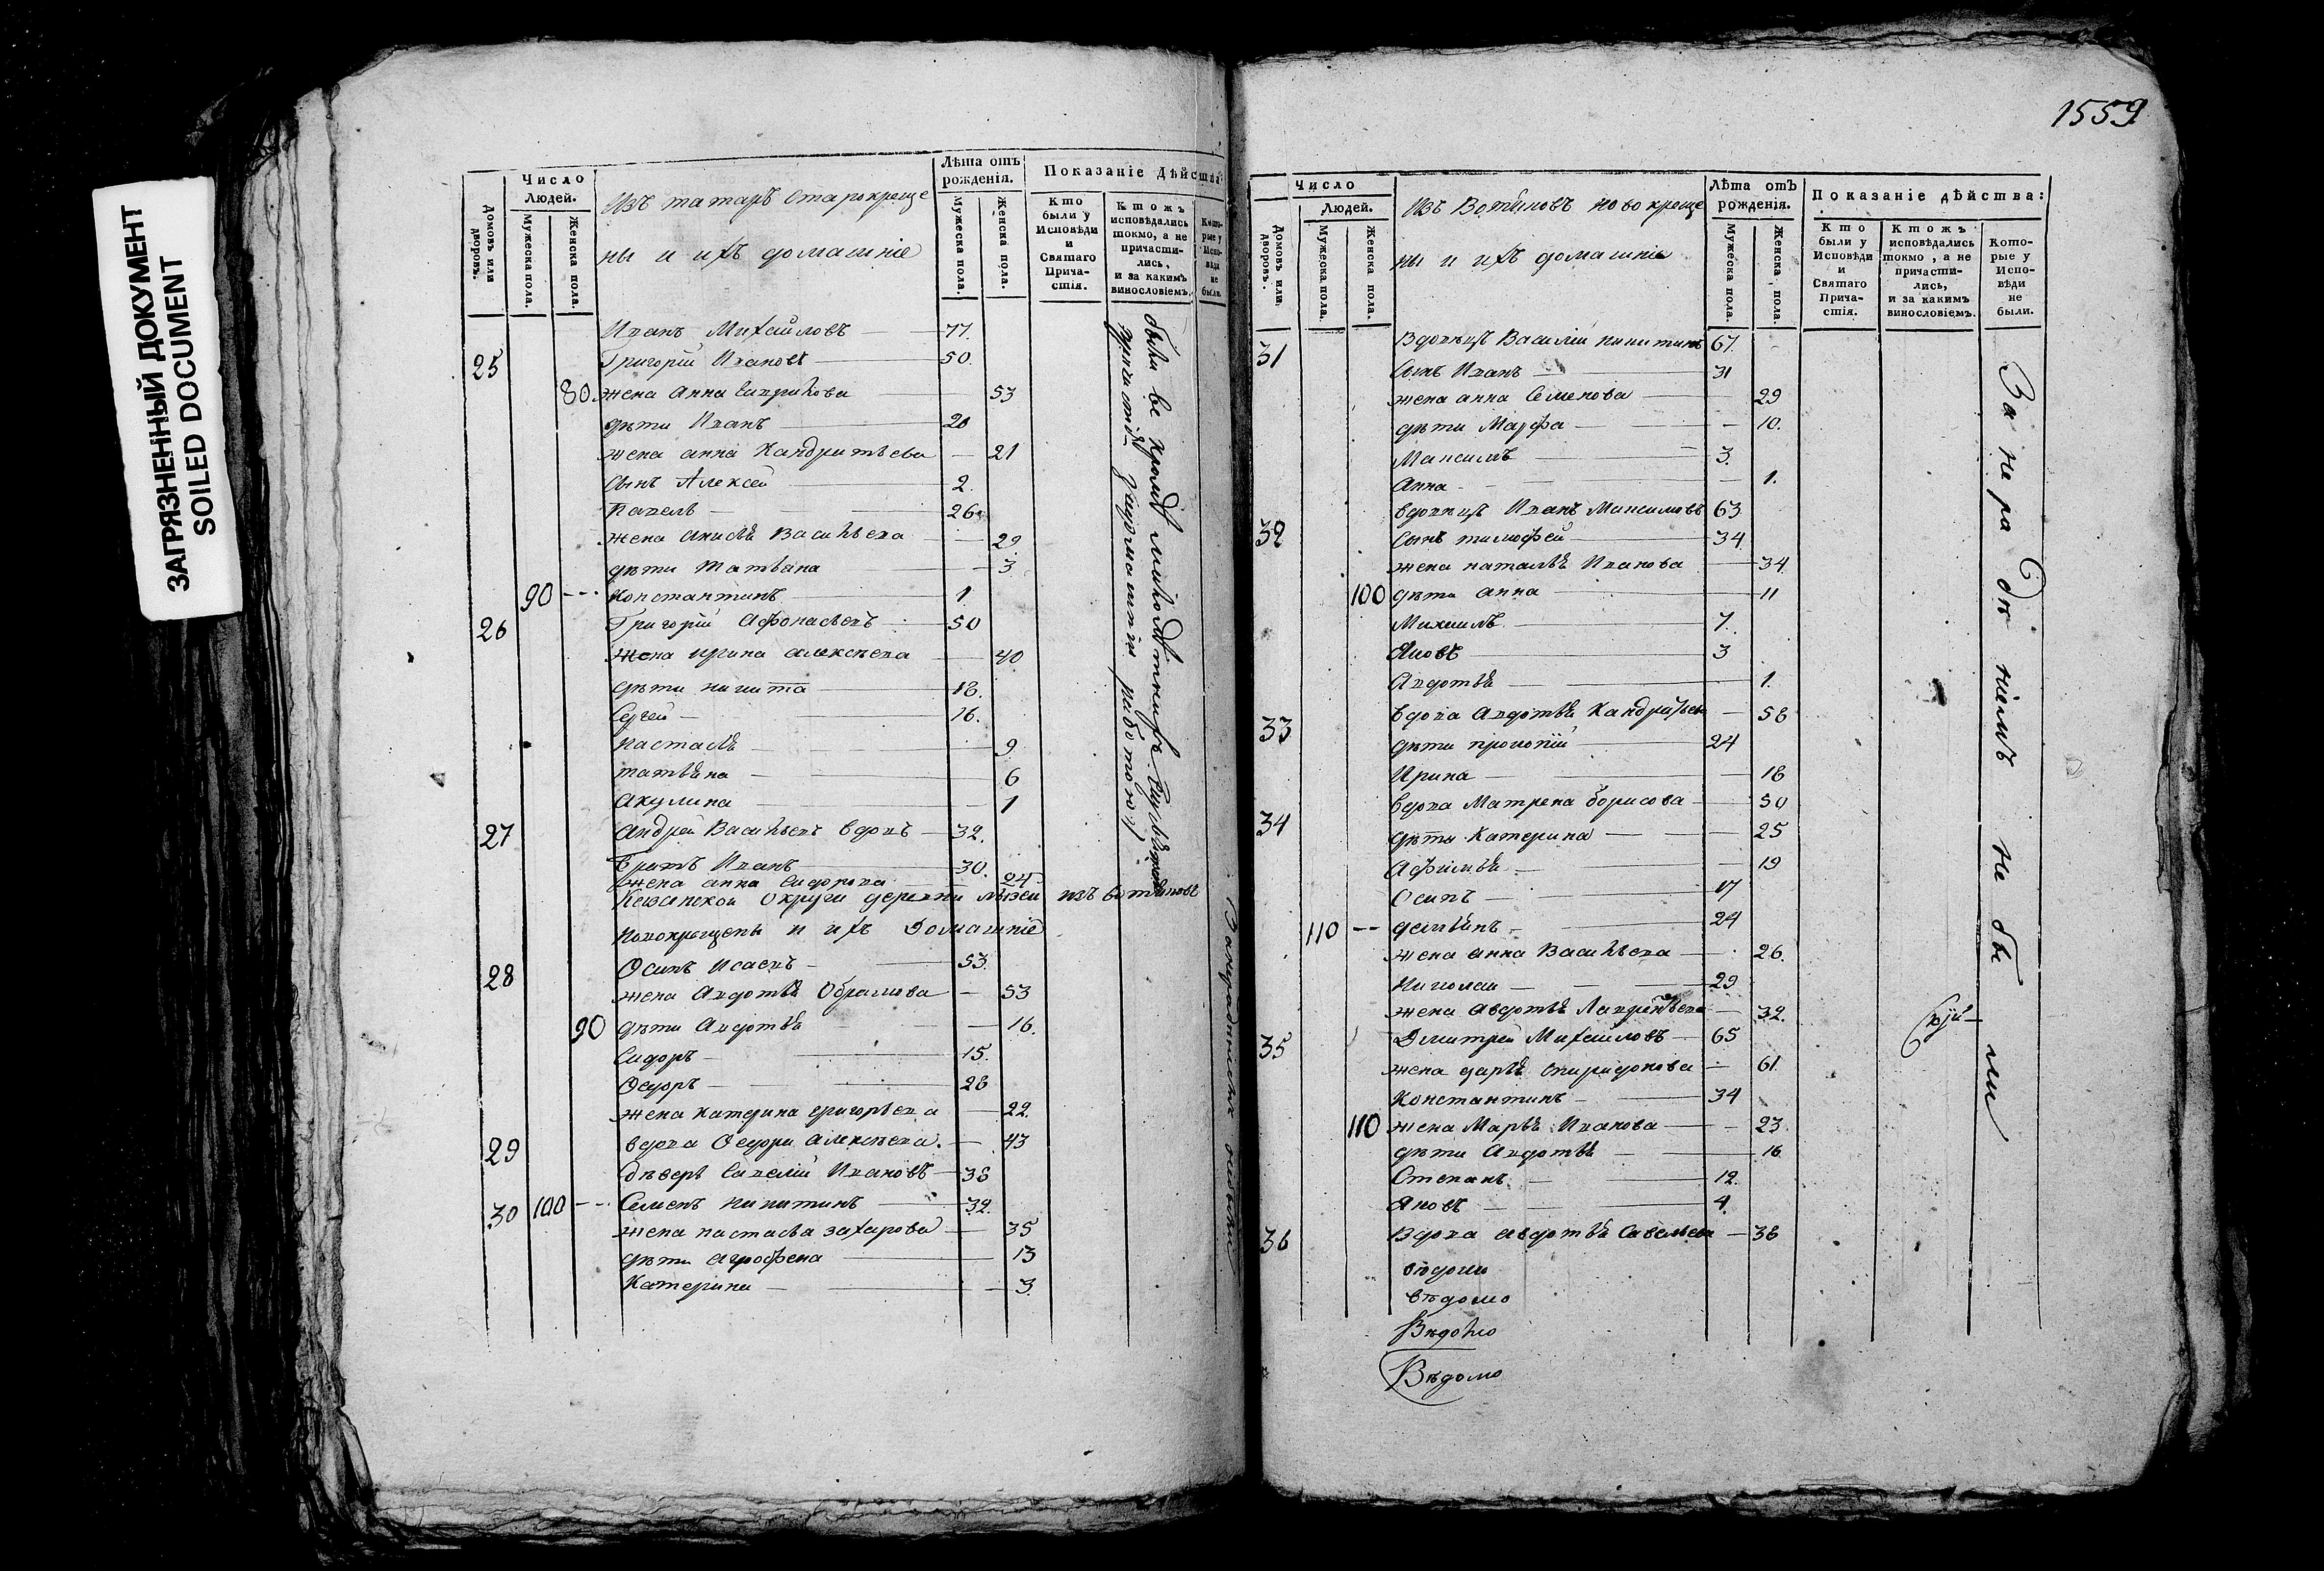 ЗАГРЯЗНЕННЫЙ ДОКУМЕНТ
SOILED DOCUMENT
Домовъ или дворовъ.
Число Людей.
Мужеска пола.
Женска пола.
Изъ татаръ старокреще
ны и ихъ домашніе
Лѣта отъ рожденія.
Мужеска пола.
Женска пола.
Показаніе Дѣйства
Кто были у Исповѣди и Святаго Прича-стія.
Ктожъ исповѣдались токмо, а не причасти-лись, и за какимъ винословіемъ.
Кото-рые у Испо-вѣди не были.
Иванъ Михайловъ 77.
25 Григорій Ивановъ 50.
80. жена Анна 53
дѣти Иванъ 20
жена анна Кандратьева 21
сынъ Алексей 2.
Павелъ 26.
жена Васильева 29.
дѣти татьяна 3
90 Константинъ 1.
26 Григорій Афонасьевъ 50
жена ирина алексѣева 40
дѣти никита 18.
Сергей 16.
настасья 9
татьяна 6
Акулина 1
27 Андрей Васильевъ вдовъ 32.
братъ Иванъ 30.
жена анна сидорова 24.
Казанской Округи деревни изъ вотяковъ
новокрещены и ихъ Домашніе
28 Осипъ Исаевъ 53.
жена Авдотья Обрамова 53
90 дѣти Авдотья 16.
Сидоръ 15.
Ѳедоръ 28
жена катерина григорьева 22
29 вдова Ѳедора алексѣева. 43
деверь Савелій Ивановъ 38
30 100 Семенъ никитинъ 32.
жена настасья захарова 35
дѣти Агрофена 13
Катерина 3.
1559
Домовъ или дворовъ.
Число Людей.
Мужеска пола.
Женска пола.
Изъ Вотяковъ новокреще
ны и ихъ домашніе
Лѣта отъ рожденія.
Мужеска пола.
Женска пола.
Показаніе дѣйства:
Кто были у Исповѣди и Святаго Прича-стія.
Ктожъ исповѣдались токмо, а не причасти-лись, и за какимъ винословіемъ.
Кото-рые у Испо-вѣди не были.
31 Вдовецъ Василій никитинъ 67.
сынъ Иванъ 31
жена анна Семенова 29
дѣти Марфа 10.
Максимъ 3.
Анна 1.
32 вдовецъ Иванъ Максимовъ 63
сынъ тимофей 34
жена наталья Иванова 34
100 дѣти анна 11
Михаилъ 7.
Яковъ 3
Авдотья 1.
33 вдова Авдотья Кандратьева 58
дѣти прокопій 24
Ирина 18
34 вдова Матрена борисова 50
дѣти Катерина 25
Афимья 19
Осипъ 17
110 демьянъ 24
жена анна Васильева 26.
Николай 29
жена авдотья Лаврентьева 32.
35 Дмитрей Михайловъ 65
жена дарья спиридонова 61.
Константинъ 34
110 жена Марья Иванова 23.
дѣти Авдотья 16
Степанъ 12.
Яковъ 4.
36 Вдова авдотья Савельева 36
За нерадѣніемъ не были
вѣдомо
Вѣдомо
Вѣдомо